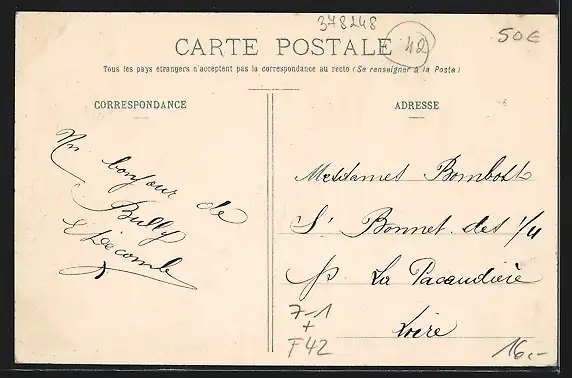 378248
50€
CARTE POSTALE
42
Tous les pays étrangers n'acceptent pas la correspondance au recto (Se renseigner à la Poste)
CORRESPONDANCE
Un bonjour de
Bully
ADRESSE
Mesdames Bombost
St Bonnet des 4/4
p. La Pacaudière
Loire
7-1
+
F42
16,-